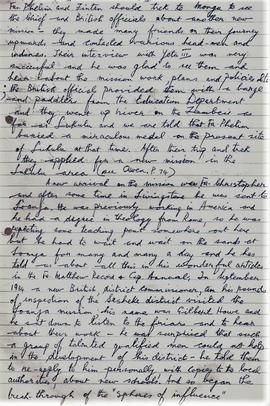 Frs Phelim and Fintan should trek to Mongu to see
the Chief and British officials about another new
mission - they made many friends on their journey
upwards and contacted various head men and
indunas. Their interview with Yeta III was most
successful and he was glad to see them and
hear about the mission work plans and policies etc.
the British official provided them with a barge
and paddlers from the Education Department
and they went up river on the Zambesi as
far as Lukulu and we are told that Fr Phelim
buried a miraculous medal on the present site
of Lukulu at that time. After their trip and trek
they applied for a new mission in the
Lukulu area (see Owen. P. 74)
A new arrival on the mission was Fr. Christopher
and after some time in Livingstone he was sent to
Loanja. He was previously studying in America and
he had a degree in theology from Rome, so he was
expecting some teaching post somewhere out here
but he had to wait and wait on the sands at
Loanja for many and many a day and he has
told us about all this in his wonderful articles
in the Fr. Matthew Record & Cap. Annuals. In September
a new British district commissioner, on his rounds
of inspection of the Sesheke district visited the
Loanja mission, his name was Gilbert Howe and
he sat down to listen to the friars and to hear
about their work - he was surprised that such
a group of talented qualified men could not help
in the development of this district - he told them
to re-apply to him personally, with copies to local
authorities about new schools. And so began the
break through of the "spheres of influence"